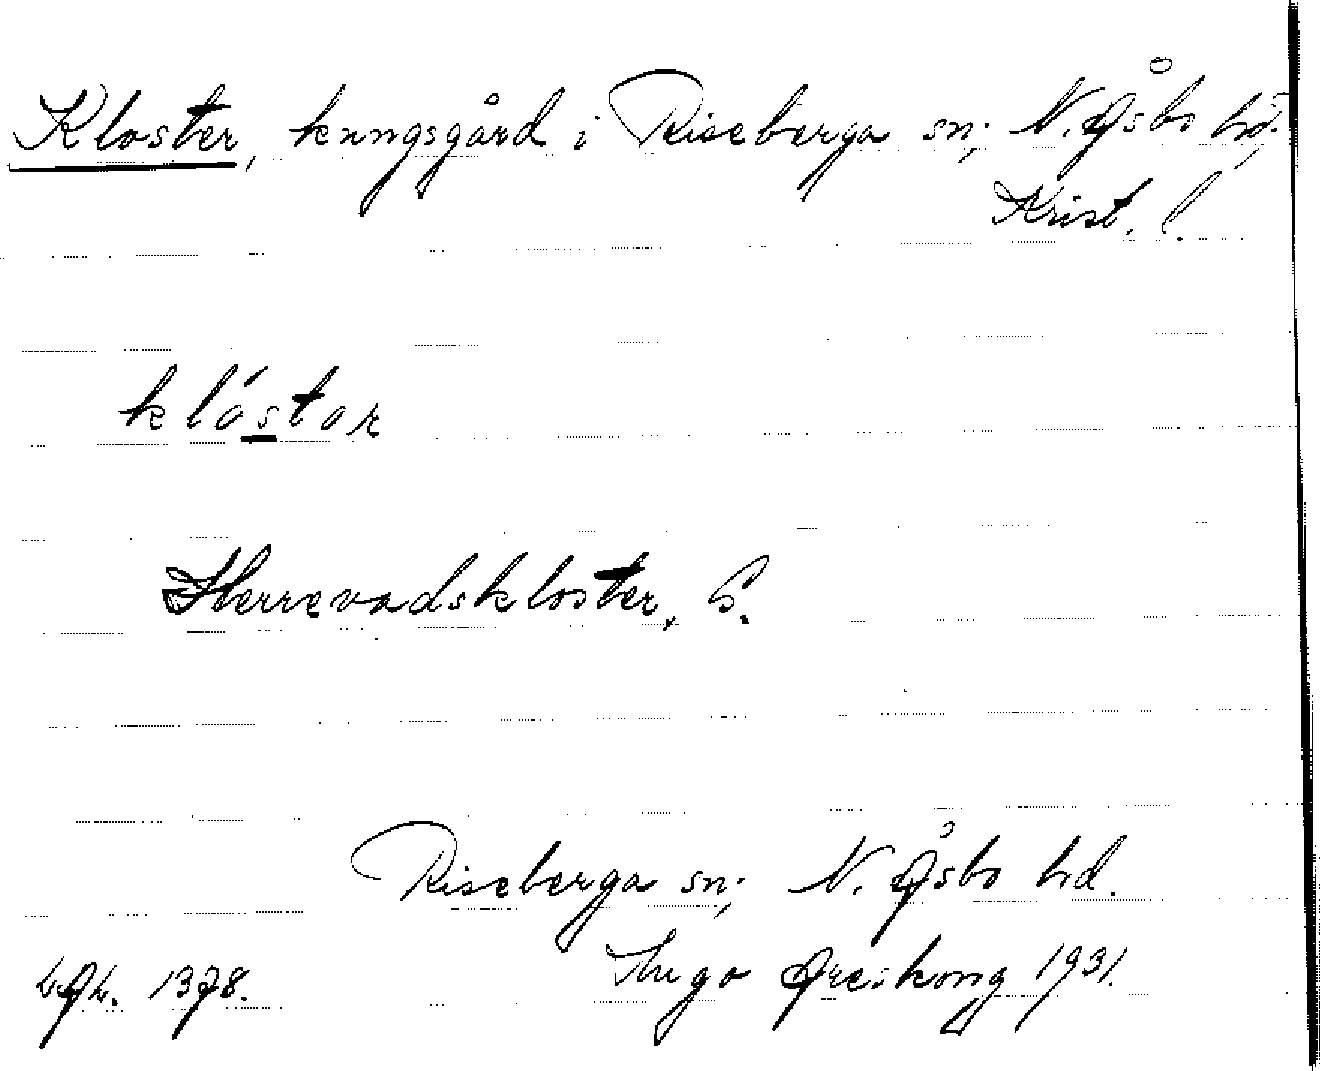 Kloster, kungsgård i Riseberga sn; N. Åsbo hd.
Krist. l.
klóstar
Herrevadskloster, S.
Riseberga sn; N. Åsbo hd.
1378. Hugo Areskoug 1931.